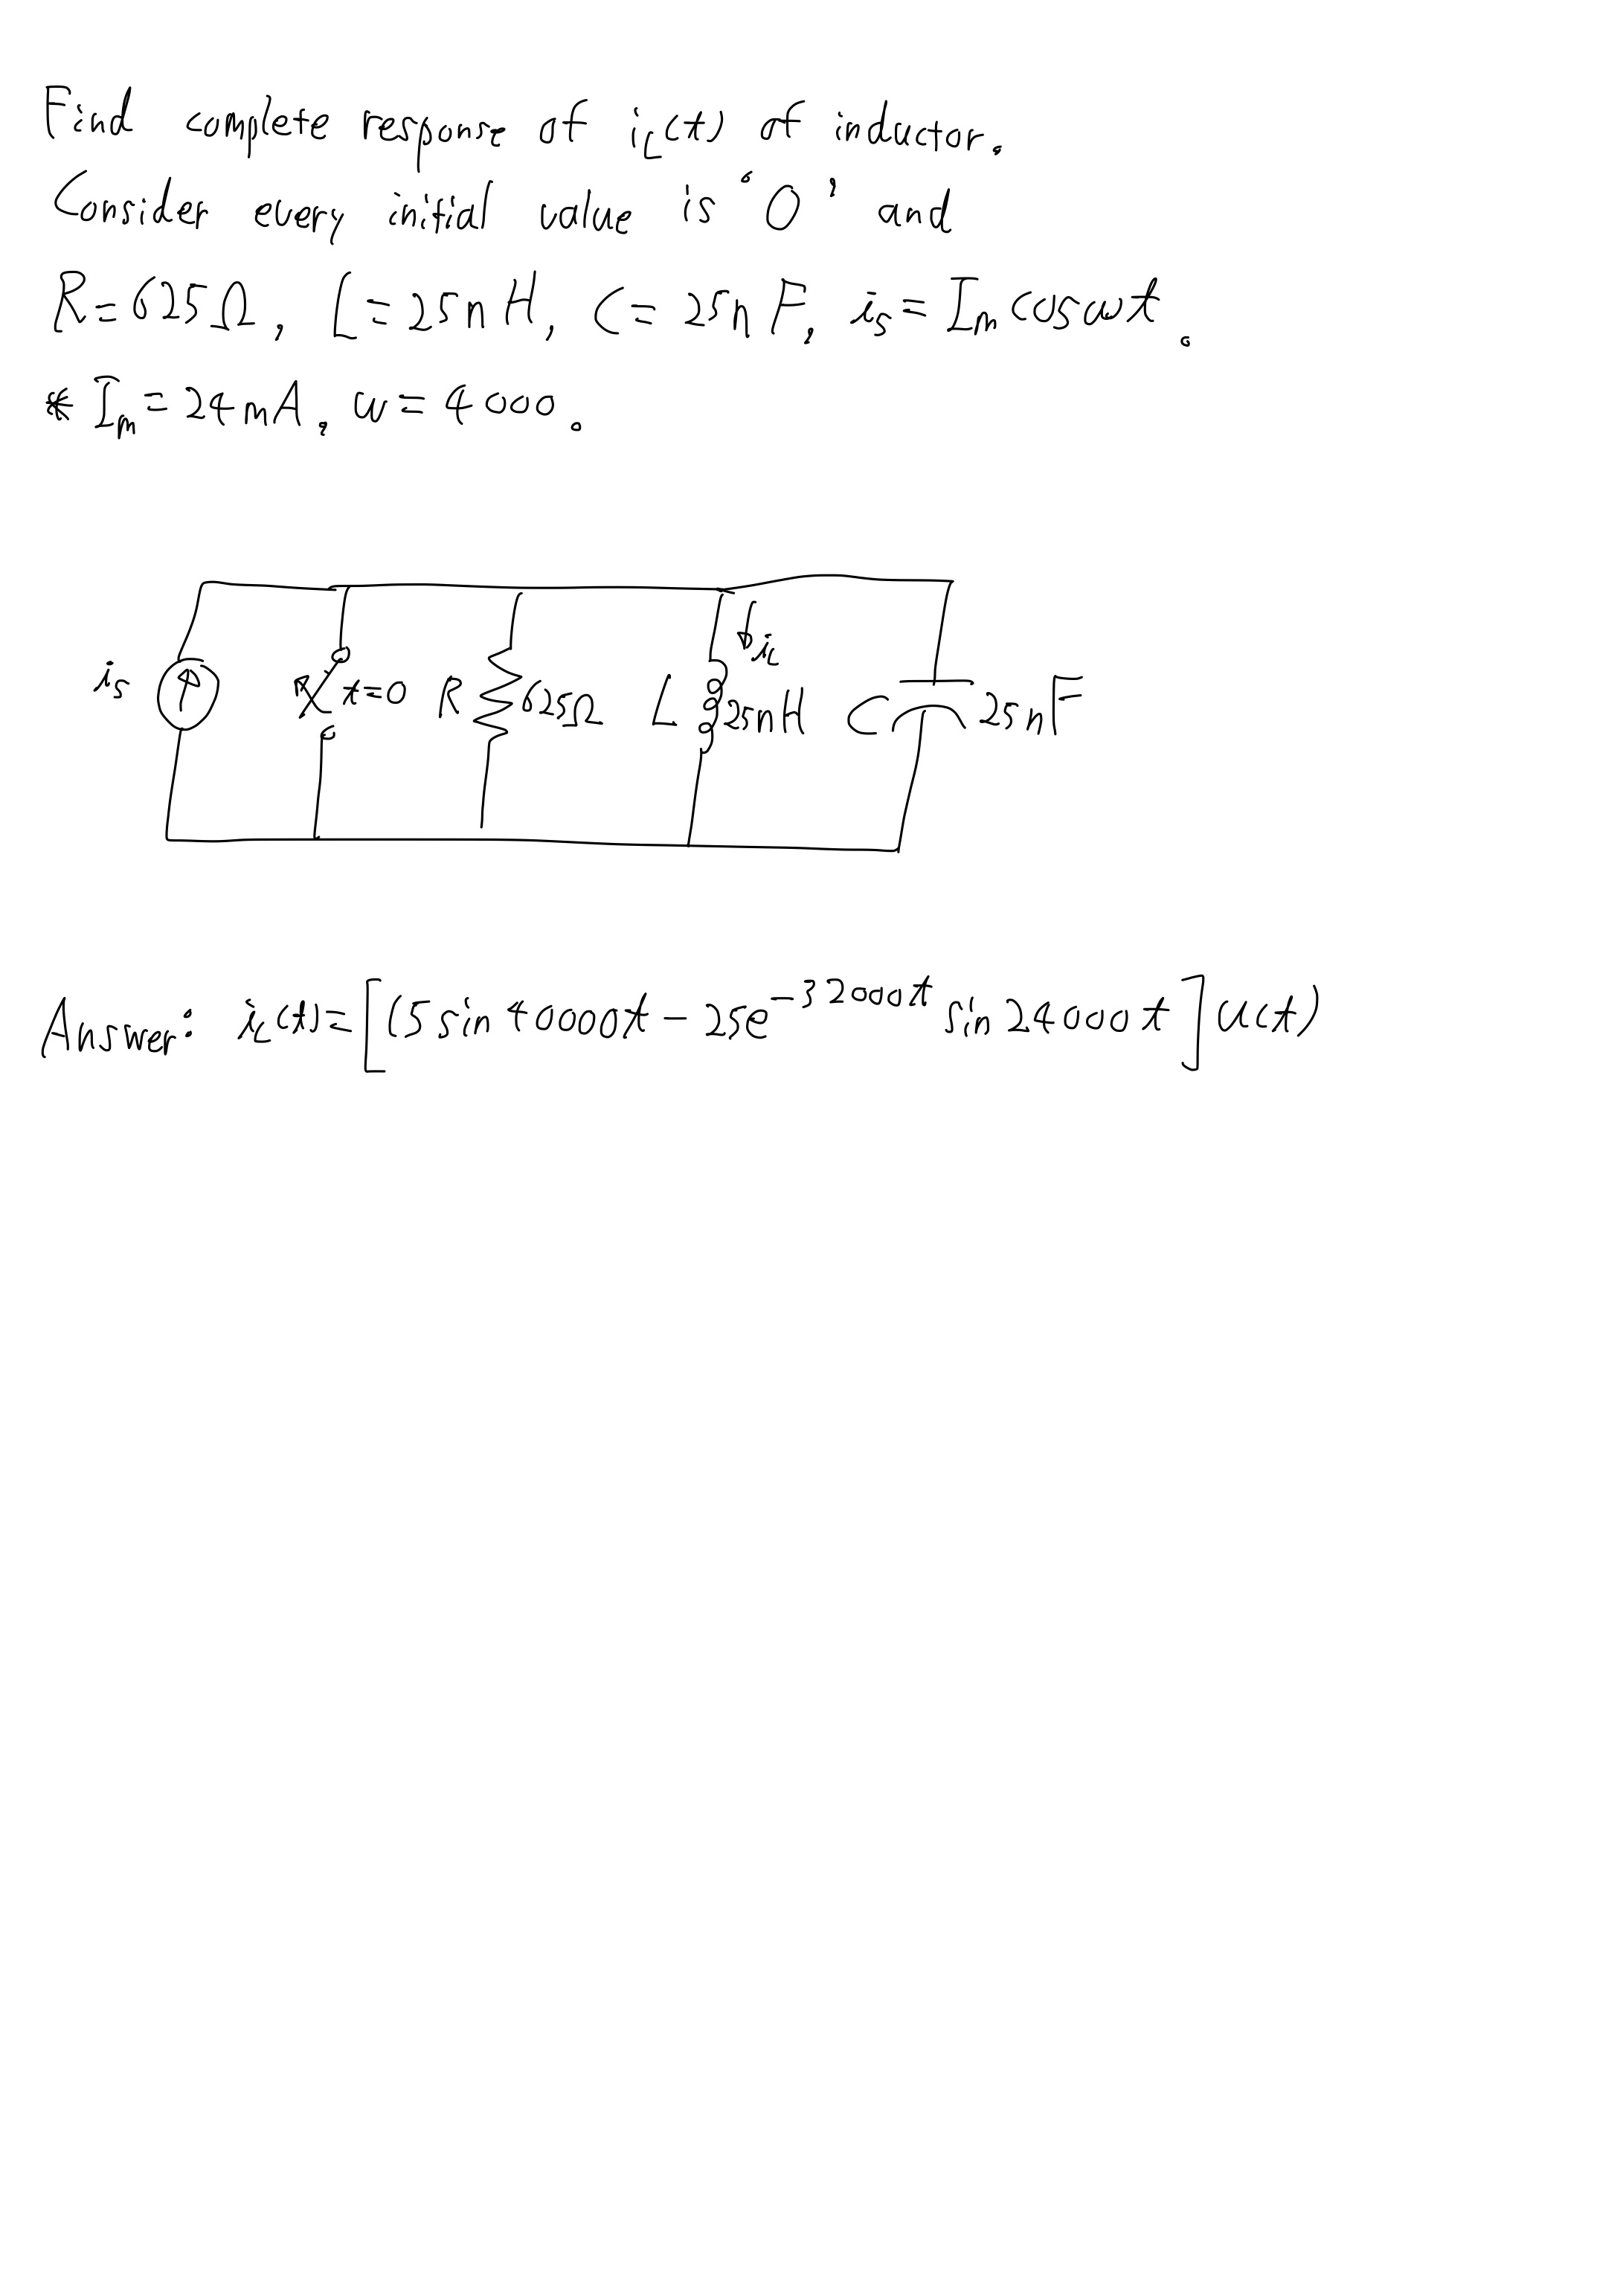 Find complete response of iL(t) of inductor.
Consider every initial value is '0' and
R=625Ω, L=25mH, C=25nF, is=Im cosωt.
* Im=24mA, ω=4000.
is
t=0
R
625Ω
L
iL
25mH
C
25nF
Answer: iL(t)=[(5sin40000t-25e^-32000t sin24000t]u(t)